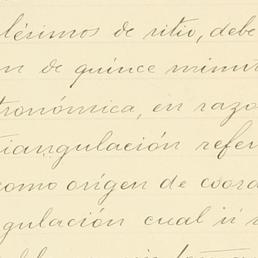 lésimos de sitio, debe
n de quince minu
tronómica, en razo
iangulación refer
como orígen de coord
gulación cual